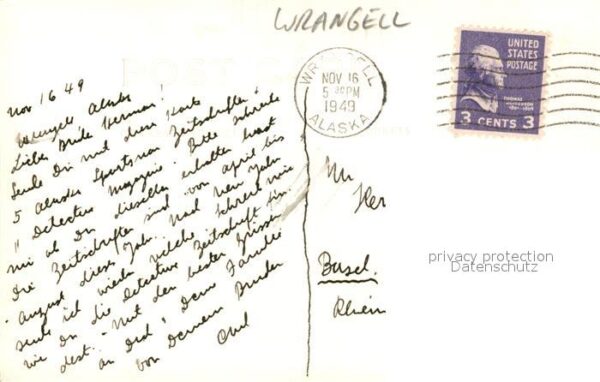 WRANGELL
Nov 16 49
Wrangell Alaska
Lieber Bruder Herman!
Sende Dir mit dieser Karte
5 Alaska Sportsman Zeitschriften &
" Detective Magazine. Bitte schreibe
mir ob Du dieselben erhalten hast
Die Zeitschriften sind von April bis
August dieses Jahr. Nach Neu Jahr
sende ich wieder welche. Schreibe mir
wie Du die Detective Zeitschrift
dest. - Mit den besten Grüssen
an Dich & Deine Familie
von Deinem Bruder
WRANGELL
NOV 16
5 30 PM
1949
ALASKA
UNITED
STATES
POSTAGE
THOMAS
JEFFERSON
3 CENTS 3
Mr
Her
Basel.
Rhein
privacy protection
Datenschutz